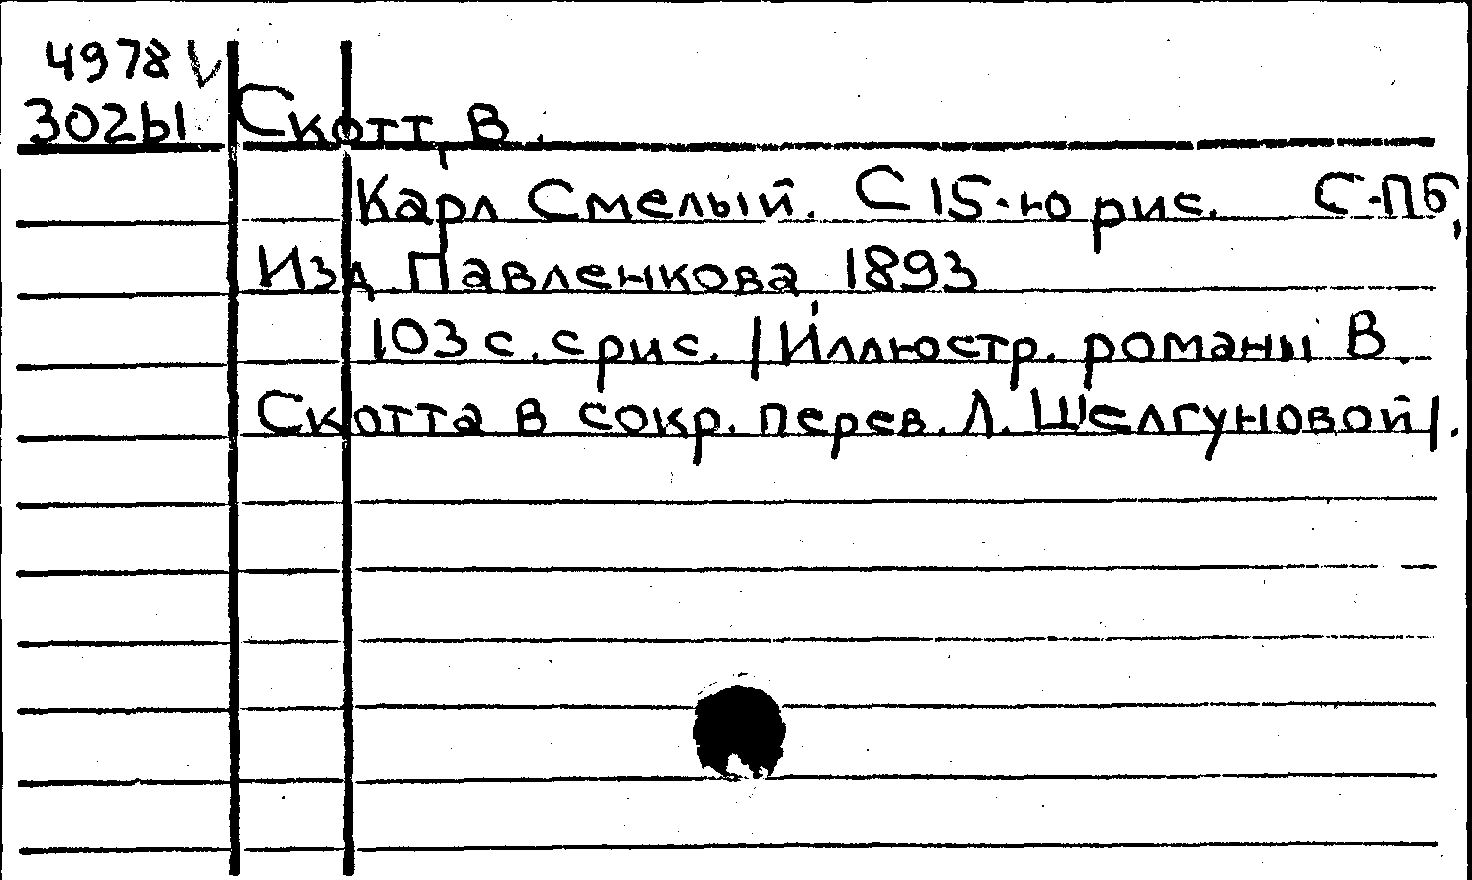 4978 V
302Ы Скотт, В.
Карл Смелый. С 15-ю рис. С-Пб,
Изд. Павленкова, 1893
103 с. с рис. /Иллюстр. романы В.
Скотта в сокр. перев. Л. Шелгуновой/.